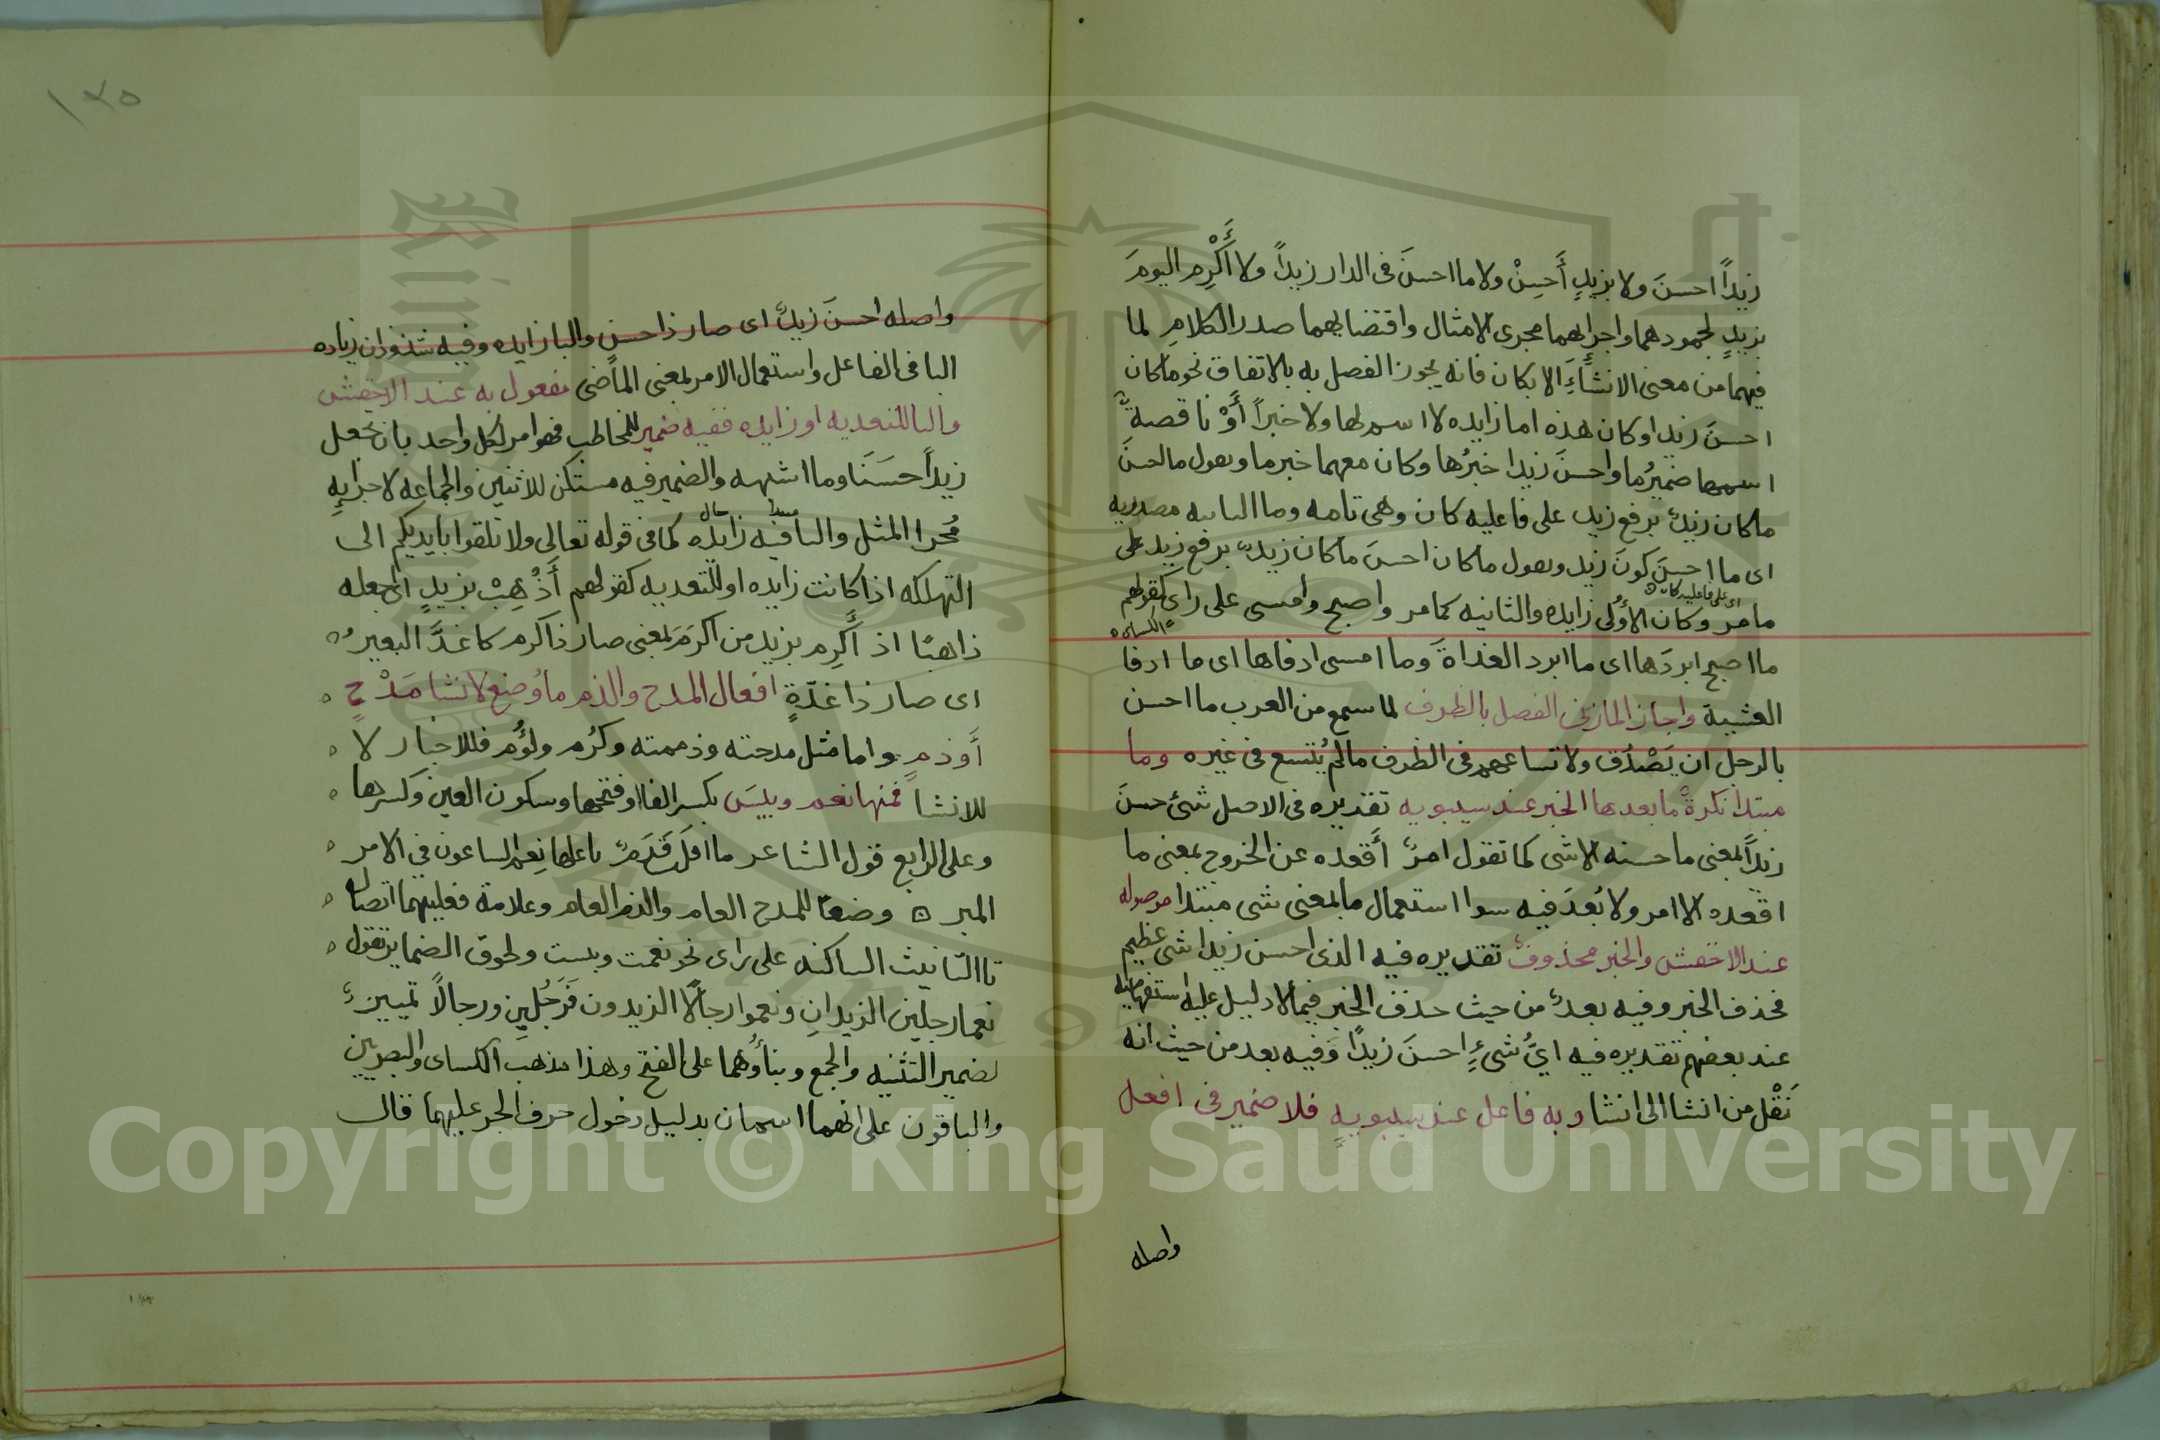 زيداً احسنَ ولا بزيدٍ أَحسِنْ ولا ما احسنَ فى الدار زيداً ولا أَكْرِم اليومَ
بزيدٍ لجمودهما واجرايهما مجرى الامثال واقتضايهما صدر الكلامِ لما
فيهما من معنى الانشَأَءِ الا بكان فانه يجوز الفصل به بالاتفاق نحو ما كان
احسنَ زيدا وكان هذه اما زايده لا اسم لها ولا خبراً أَوْ ناقصةٌ
اسمها ضميرُ ما واحسنَ زيدا خبرُها وكان معهما خبر ما ويعول ما احسنَ
ما كان زيدٌ برفع زيد على فاعليه كان وهى تامه وما الثانيه مصدريه
اى ما احسنَ كونَ زيد ويعول ما كان احسنَ ما كان زيدٌ برفع زيد على
اى على فاعليه كان
ما مر وكان الأُولى زايده والثانيه كما مر واصبح وامسى على راى كقولهم
الكسائى
ما اصبح ابردَها اى ما ابرد الغداةَ وما امسى ادفاها اى ما ادفا
العشية واجاز المازنى الفصل بالظرف لما سمع من العرب ما احسن
بالرجل ان يَصْدُق ولاتساعهم فى الظرف ما لم يُتسع فى غيره وما
مبتدا نكرةٌ ما بعدها الخبر عند سيبويه تقديره فى الاصل شئ حسنَ
زيداً بمعنى ما حسنه الا شى كما تقول امرٌ أَقعده عن الخروج بمعنى ما
اقعده الا امر ولا بُعدَ فيه سوا استعمال ما بمعنى شى مبتدا موصوله
عند الاخفش والخبر محذوفٌ تقديره فيه الذى احسن زيدا شى عظيم
فحذف الخبر وفيه بعدٌ من حيث حذف الخبر فيما لا دليل عليه استفهاميه
عند بعضهم تقديره فيه اىُّ شىءٍ احسنَ زيدًا وَفيه بعد من حيث انه
نَقْل من انشا الى انشا وبه فاعل عند سيبويهِ فلا ضمير فى افعل
واصله
١٢٥
واصله احسنَ زيدٌ اى صار ذا حسنٍ والبا زايده وفيه شذوذان زياده
البا فى الفاعل واستعمال الامر بمعنى الماضى مفعول به عند الاخفش
والبا للتعديه او زايده ففيه ضمير للمخاطب فهو امر لكل واحد بان يجعل
زيداً حسَنَا وما اشبهه والضمير فيه مستكن للاثنين والجماعه لاجرايهِ
مُجرا المثل والبا فيه زايده كما فى قوله تعالى ولا تلقوا بايديكم الى
التهلكه اذا كانت زايده او للتعديه كقولهم أَذْهِبْ بزيدٍ اى جعله
ذاهبًا اذ أَكرِم بزيد من اكرَمَ بمعنى صار ذا كرم كاغدَّ البعيرُ
اى صار ذا غدّةٍ افعال المدح والذم ما وُضع لانشا مَدْحٍ
أَو ذمٍ واما مثل مدحته وذممته وكرُم ولؤُم فللاخبار لا
للانشا فمنها نعم وبيسَ بكسر الفا او فتحها وسكون العين وكسرها
وعلى الرابع قول الشاعر ما اقلّت قَدَمٌ ناعلها نِعِم الساعون فى الامر
المبر وضعا للمدح العام والذم العام وعلامة فعليتهما اتصال
تا التانيث الساكنه على راى نحو نعمت وبيست ولحوق الضماير تقول
نعما رجلين الزيدانِ ونعموا رجالًا الزيدون فَرَجُلينِ ورجالًا تمييزٌ
لضمير التثنيه والجمع وبناؤُهما على الفتح وهذا مذهب الكساى والبصريين
والباقون على انهما اسمان بدليل دخول حرف الجر عليهما قال
Copyright © King Saud University